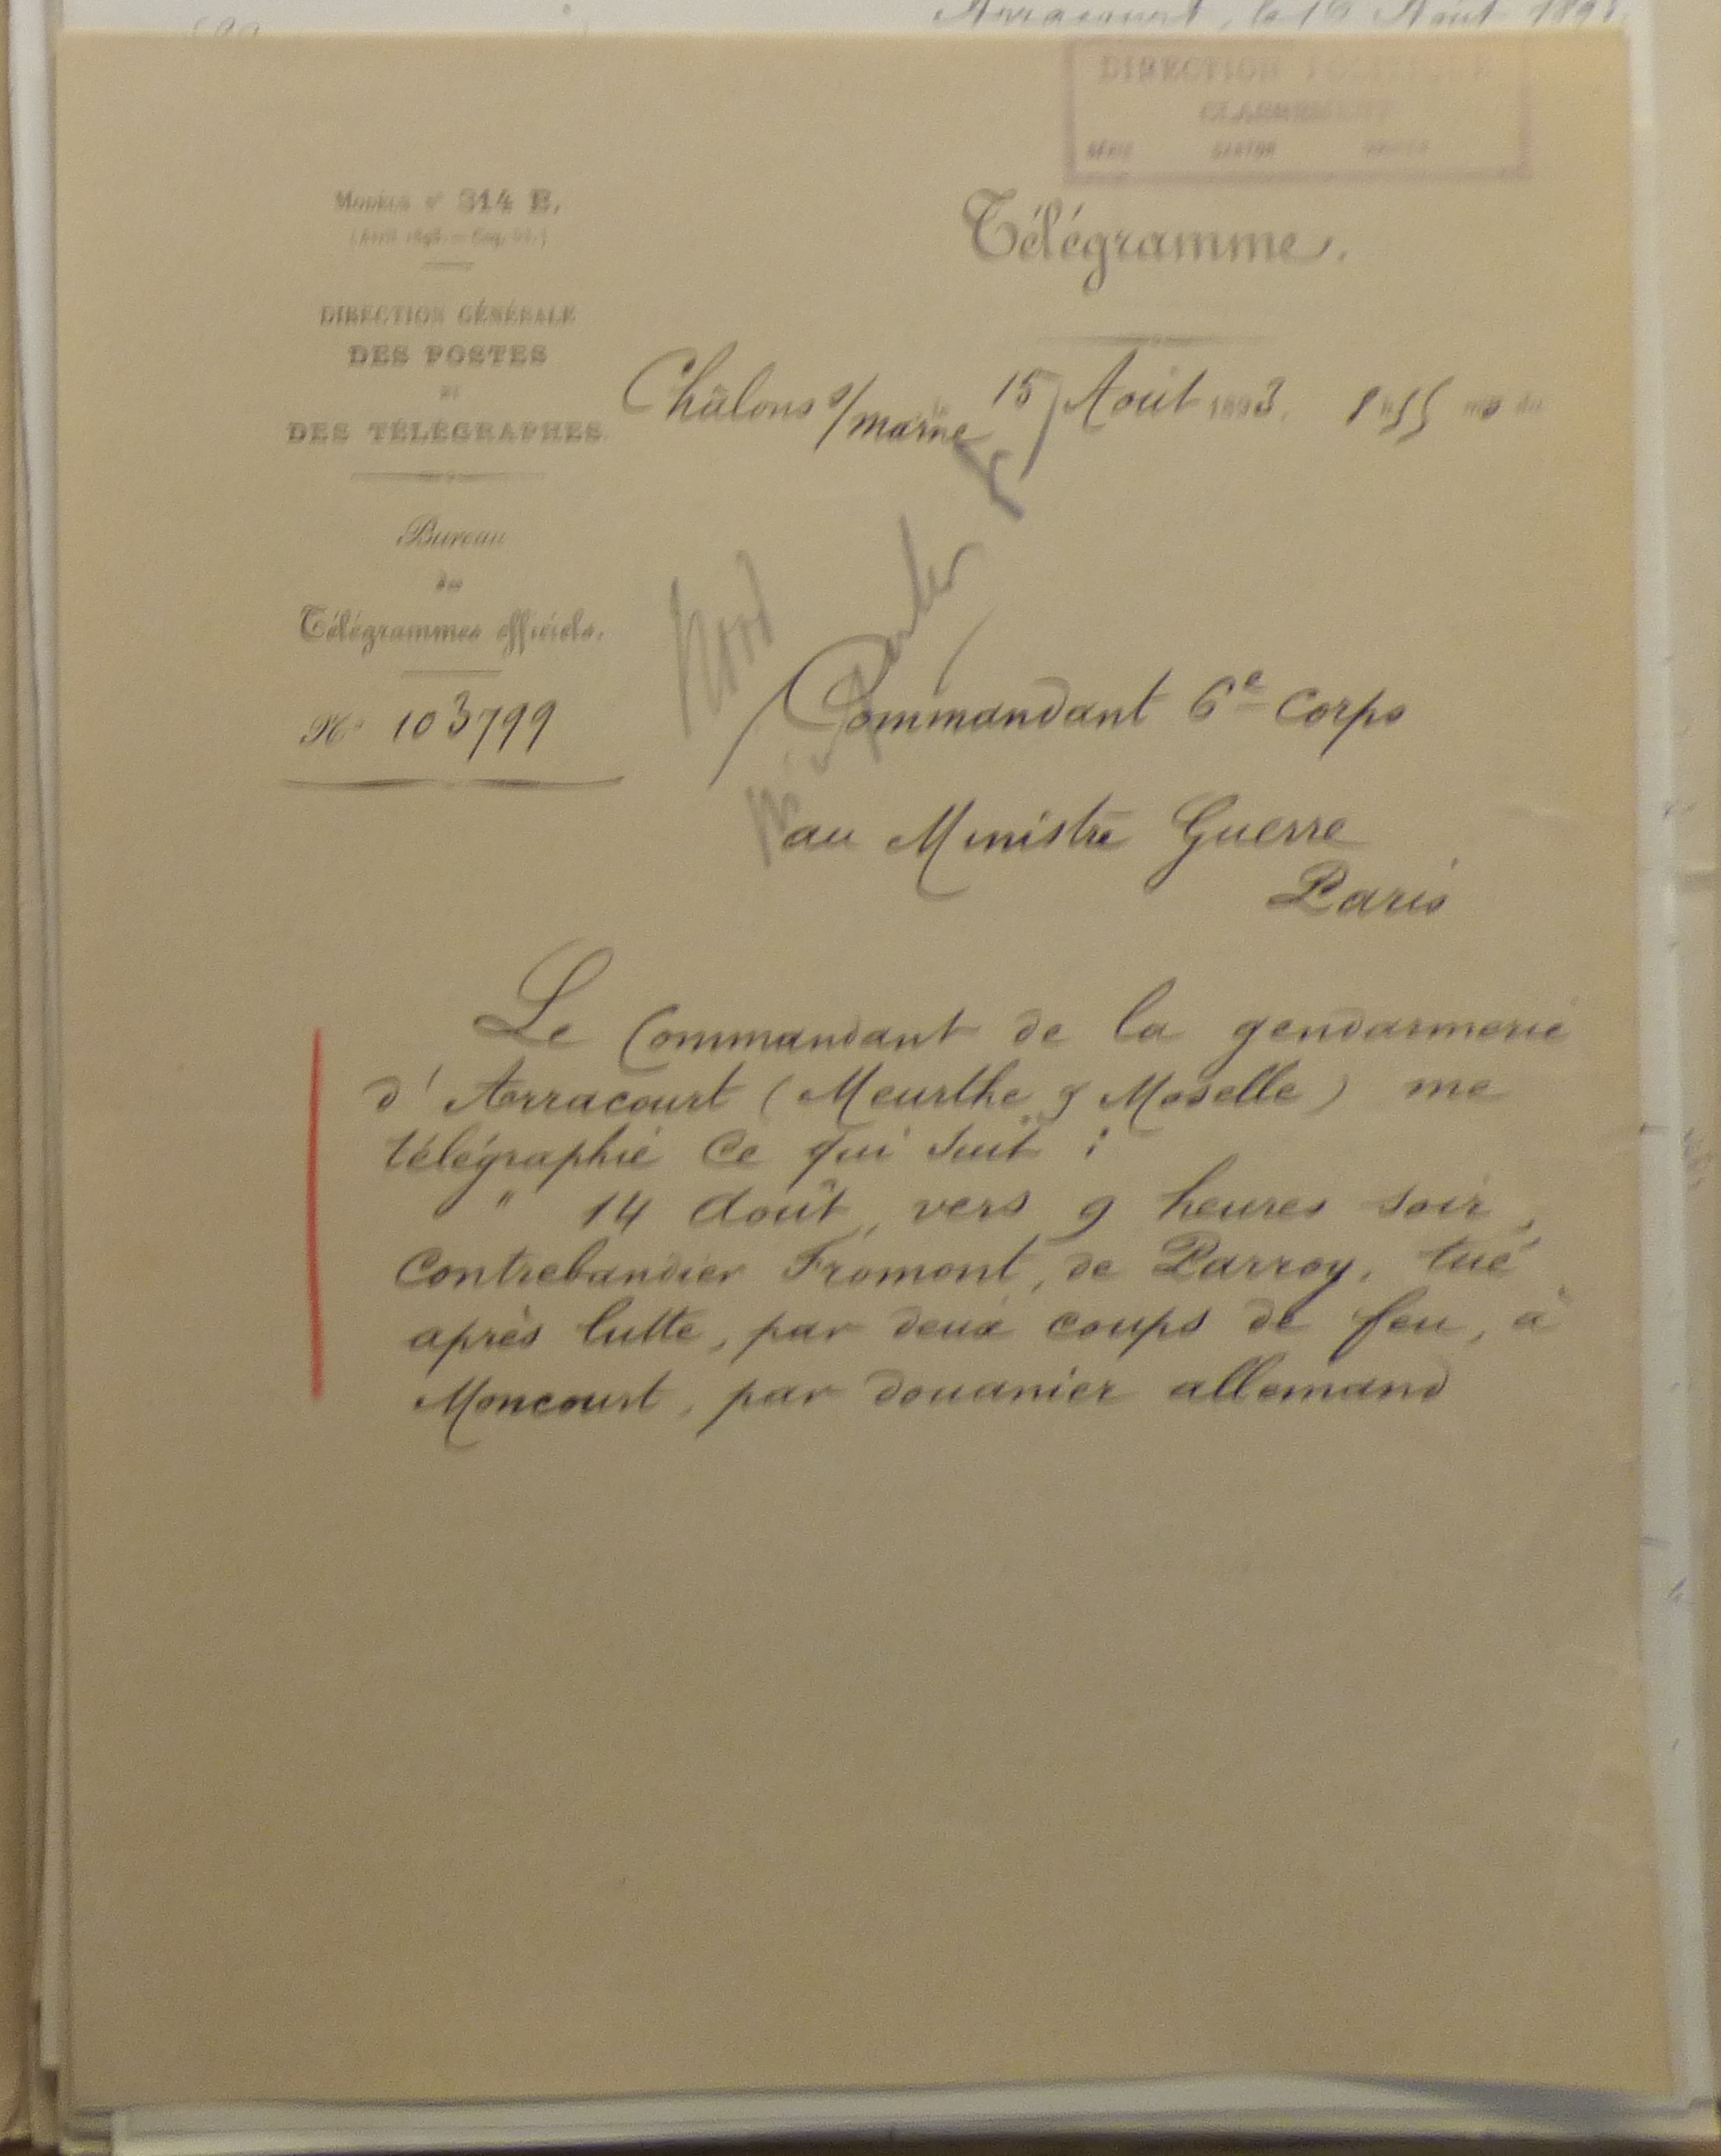 Arracourt, le 16 Août
DIRECTION POLITIQUE
CLASSEMENT
SÉRIE CARTON DOSSIER
Modèle n° 314 B.
DIRECTION GÉNÉRALE
DES POSTES
ET
DES TÉLÉGRAPHES
Bureau
des
Télégrammes officiels.
N° 103799
Télégramme.
Châlons s/ marne le 15 Août 1893. h 55 m du
Nord
Commandant 6e Corps
au Ministre Guerre
Paris
Le Commandant de la gendarmerie
d'Arracourt (Meurthe & Moselle) me
télégraphie Ce qui suit :
" 14 Août, vers 9 heures soir,
Contrebandier Fromont, de Parroy, tué
après lutte, par deux coups de feu, à
Moncourt, par douanier allemand